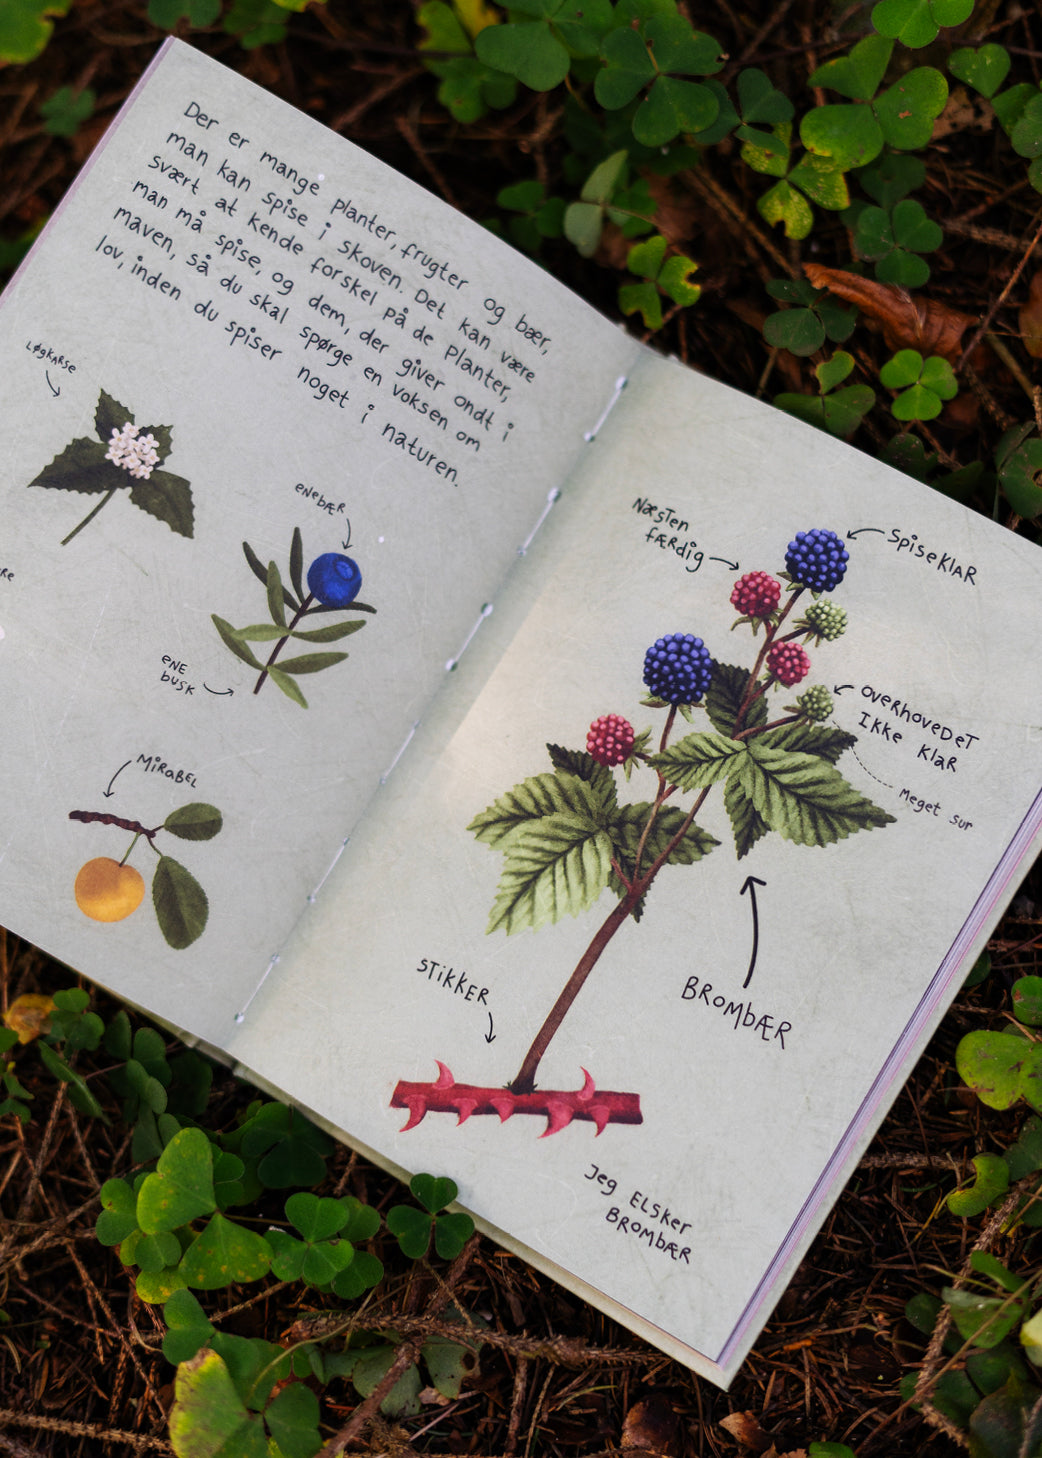 Der er mange planter, frugter og bær,
man kan spise i skoven. Det kan være
svært at kende forskel på de planter,
man må spise, og dem, der giver ondt i
maven, så du skal spørge en voksen om
lov, inden du spiser noget i naturen.
LØgKARSE
eNebÆR
ENE
bUSK
MiRABEL
NæsTen
fÆRdig
SpiseKlAR
OVeRhoveDeT
IKke KlaR
Meget sur
BROMbÆR
STiKKER
Jeg ELSker
BROMbÆR